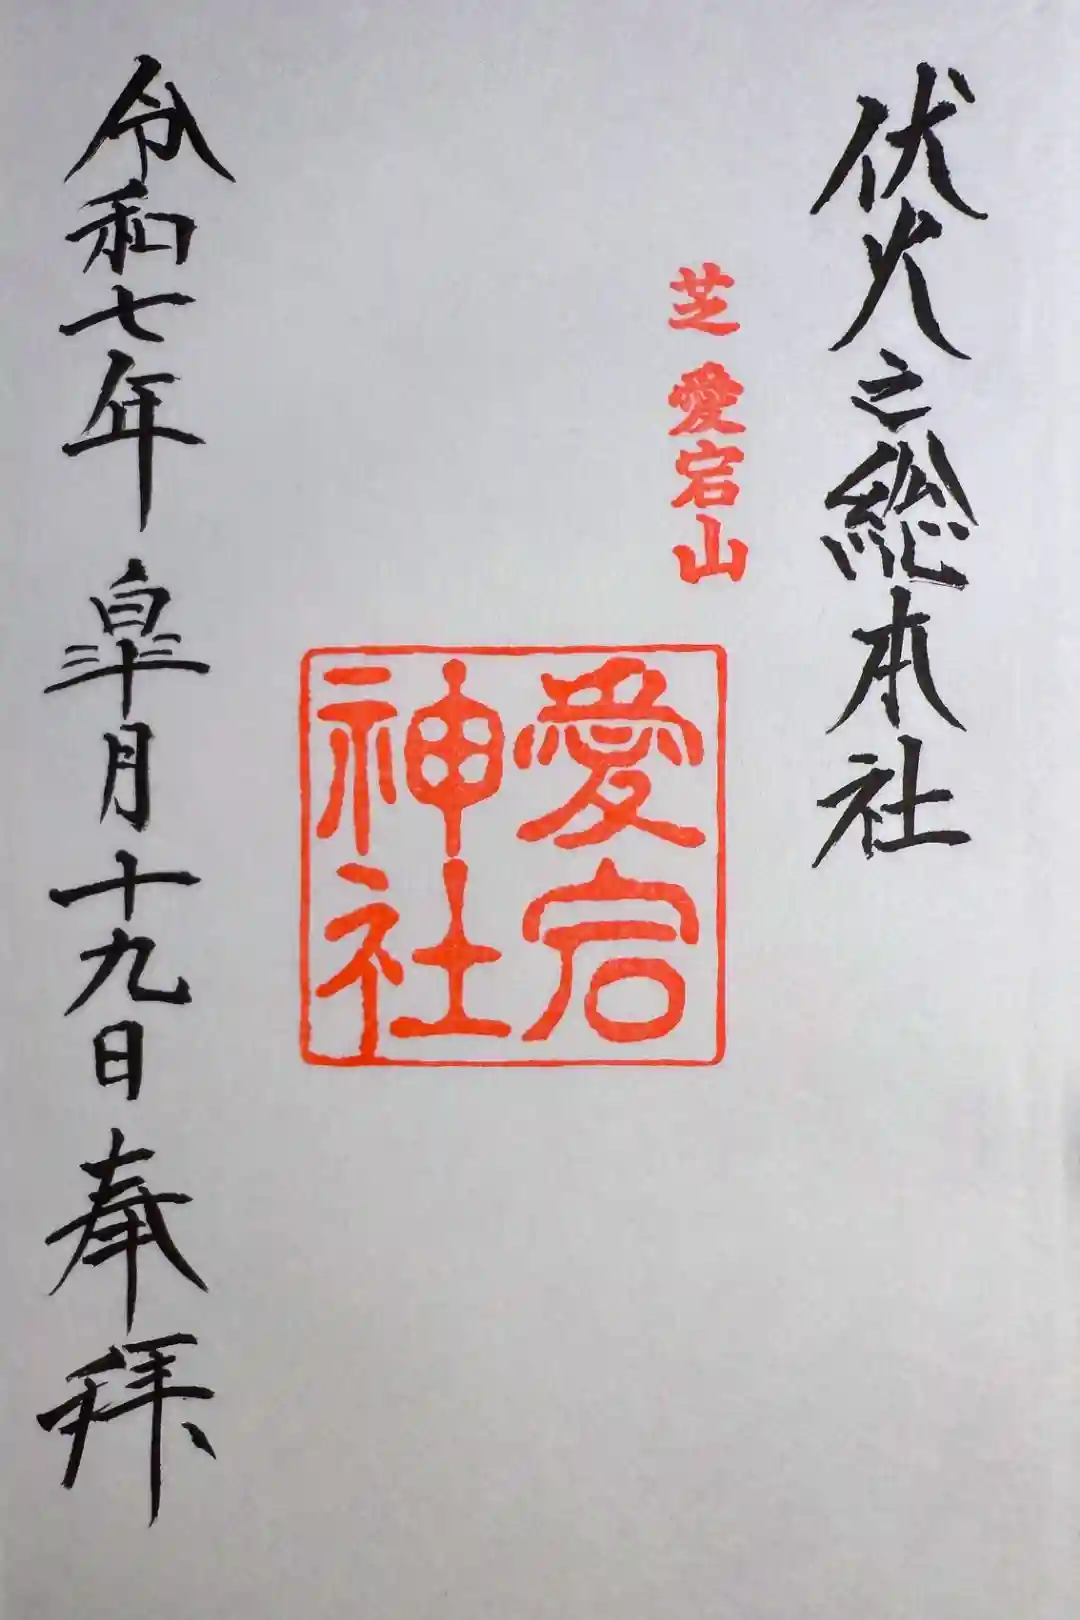 伏火之総本社
芝 愛宕山
愛宕
神社
令和七年 皐月 十九日 奉拝